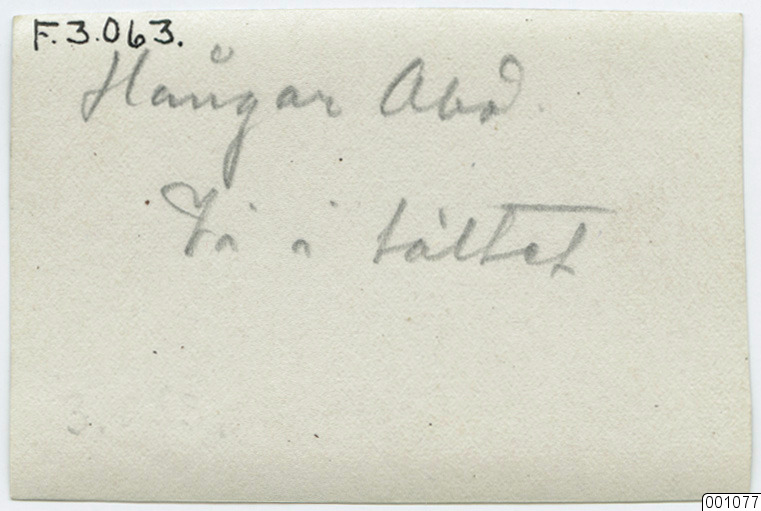 F.3.063.
Haugar Abd.
Vi i tältet
001077